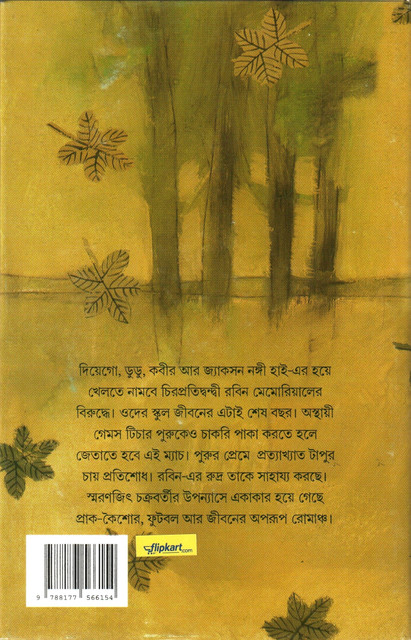 দিয়েগো, ডুডু, কবীর আর জ্যাকসন নঙ্গী হাই-এর হয়ে
খেলতে নামবে চিরপ্রতিদ্বন্দ্বী রবিন মেমোরিয়ালের
বিরুদ্ধে। ওদের স্কুল জীবনের এটাই শেষ বছর। অস্থায়ী
গেমস টিচার পুরুকেও চাকরি পাকা করতে হলে
জেতাতে হবে এই ম্যাচ। পুরুর প্রেমে প্রত্যাখ্যাত টাপুর
চায় প্রতিশোধ। রবিন-এর রুদ্র তাকে সাহায্য করছে।
স্মরণজিৎ চক্রবর্তীর উপন্যাসে একাকার হয়ে গেছে
প্রাক-কৈশোর, ফুটবল আর জীবনের অপরূপ রোমাঞ্চ।
flipkart.com
9 788177 566154